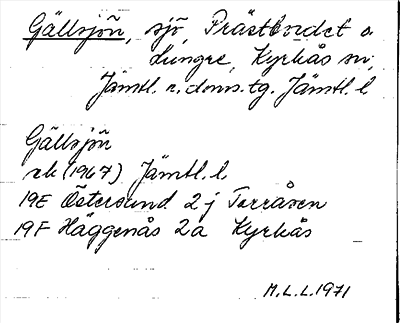 Gällsjön, sjö, Prästbordet o.
Lungre, Kyrkås sn,
Jämtl. n. doms. tg. Jämtl. l
Gällsjön
rk (1967) Jämtl. l
19E Östersund 2 j Torråsen
19F Häggenås 2a Kyrkås
M.L.L. 1971